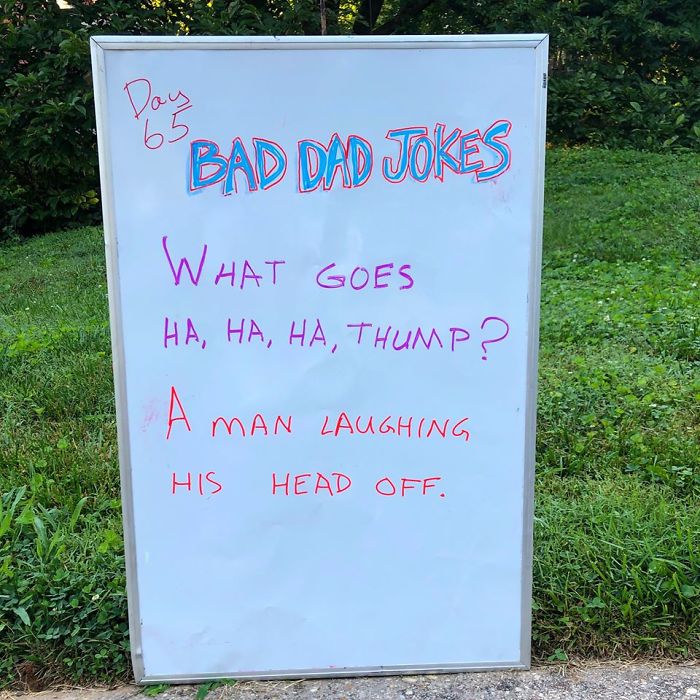 Day
65
BAD DAD JOKES
WHAT GOES
HA, HA, HA, THUMP?
A MAN LAUGHING
HIS HEAD OFF.